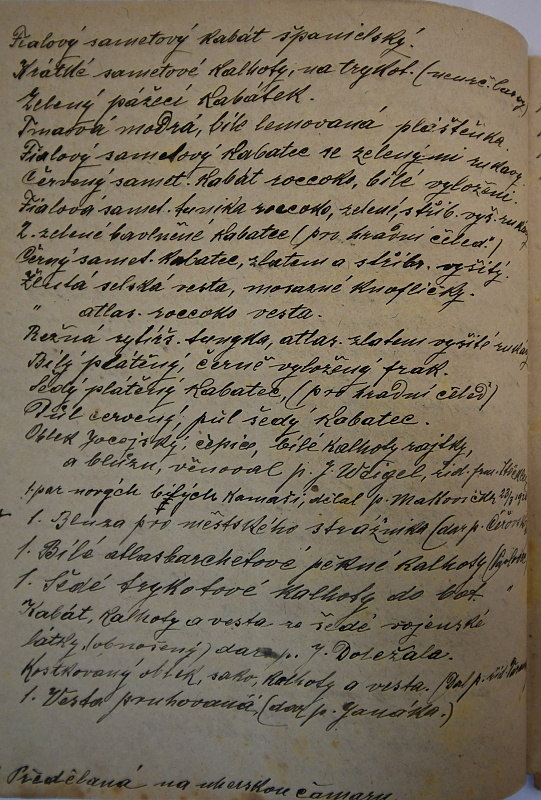 Fialový sametový kabát španielský.
Krátké sametové kalhoty, na trykot.
Zelený pážecí kabátek.
Tmavá modrá, bíle lemovaná pláštěnka.
Fialový sametový kabatec se zelenými rukávy.
Červený samet. kabát roccoko, bílé vyložení.
Fialová samet. tunika roccoko, zelení, stříb. vyš. rukávy
2. zelené bavlněné kabatce (pro hradní čeleď.)
Černý samet. kabatec, zlatem a stříbr. vyšitý.
Žlutá selska vesta, mosazné knoflíčky.
" atlas. roccoko vesta.
Režná rytířs. tunyka, atlas. zlatem vyšité rukávy
Bílý plátěný, černě vyložený frak.
Šedý plátěný kabatec, (pro hradní čeleď)
Půl červený, půl šedý kabatec.
Oblek žocejský, čepice, bílé kalhoty rajtky,
a blůzu, věnoval p. J. Weigel, řid.
1 par nových bílých kamaší, dělal p. Makovička
1. Bluza pro městského strážníka (dar p.
1. Bílé atlasbarchetové pěkné kalhoty
1. Šedé trykotové kalhoty do bot. "
Kabát, kalhoty a vesta ze šedé vojenské
látky, (obnošený) dar p. J. Doležala.
Kostkovaný oblek, sako, kalhoty a vesta. (Dal p.
1. Vesta pruhovaná, (dar p. Janáka.)
Předělaná na uherskou čamaru.